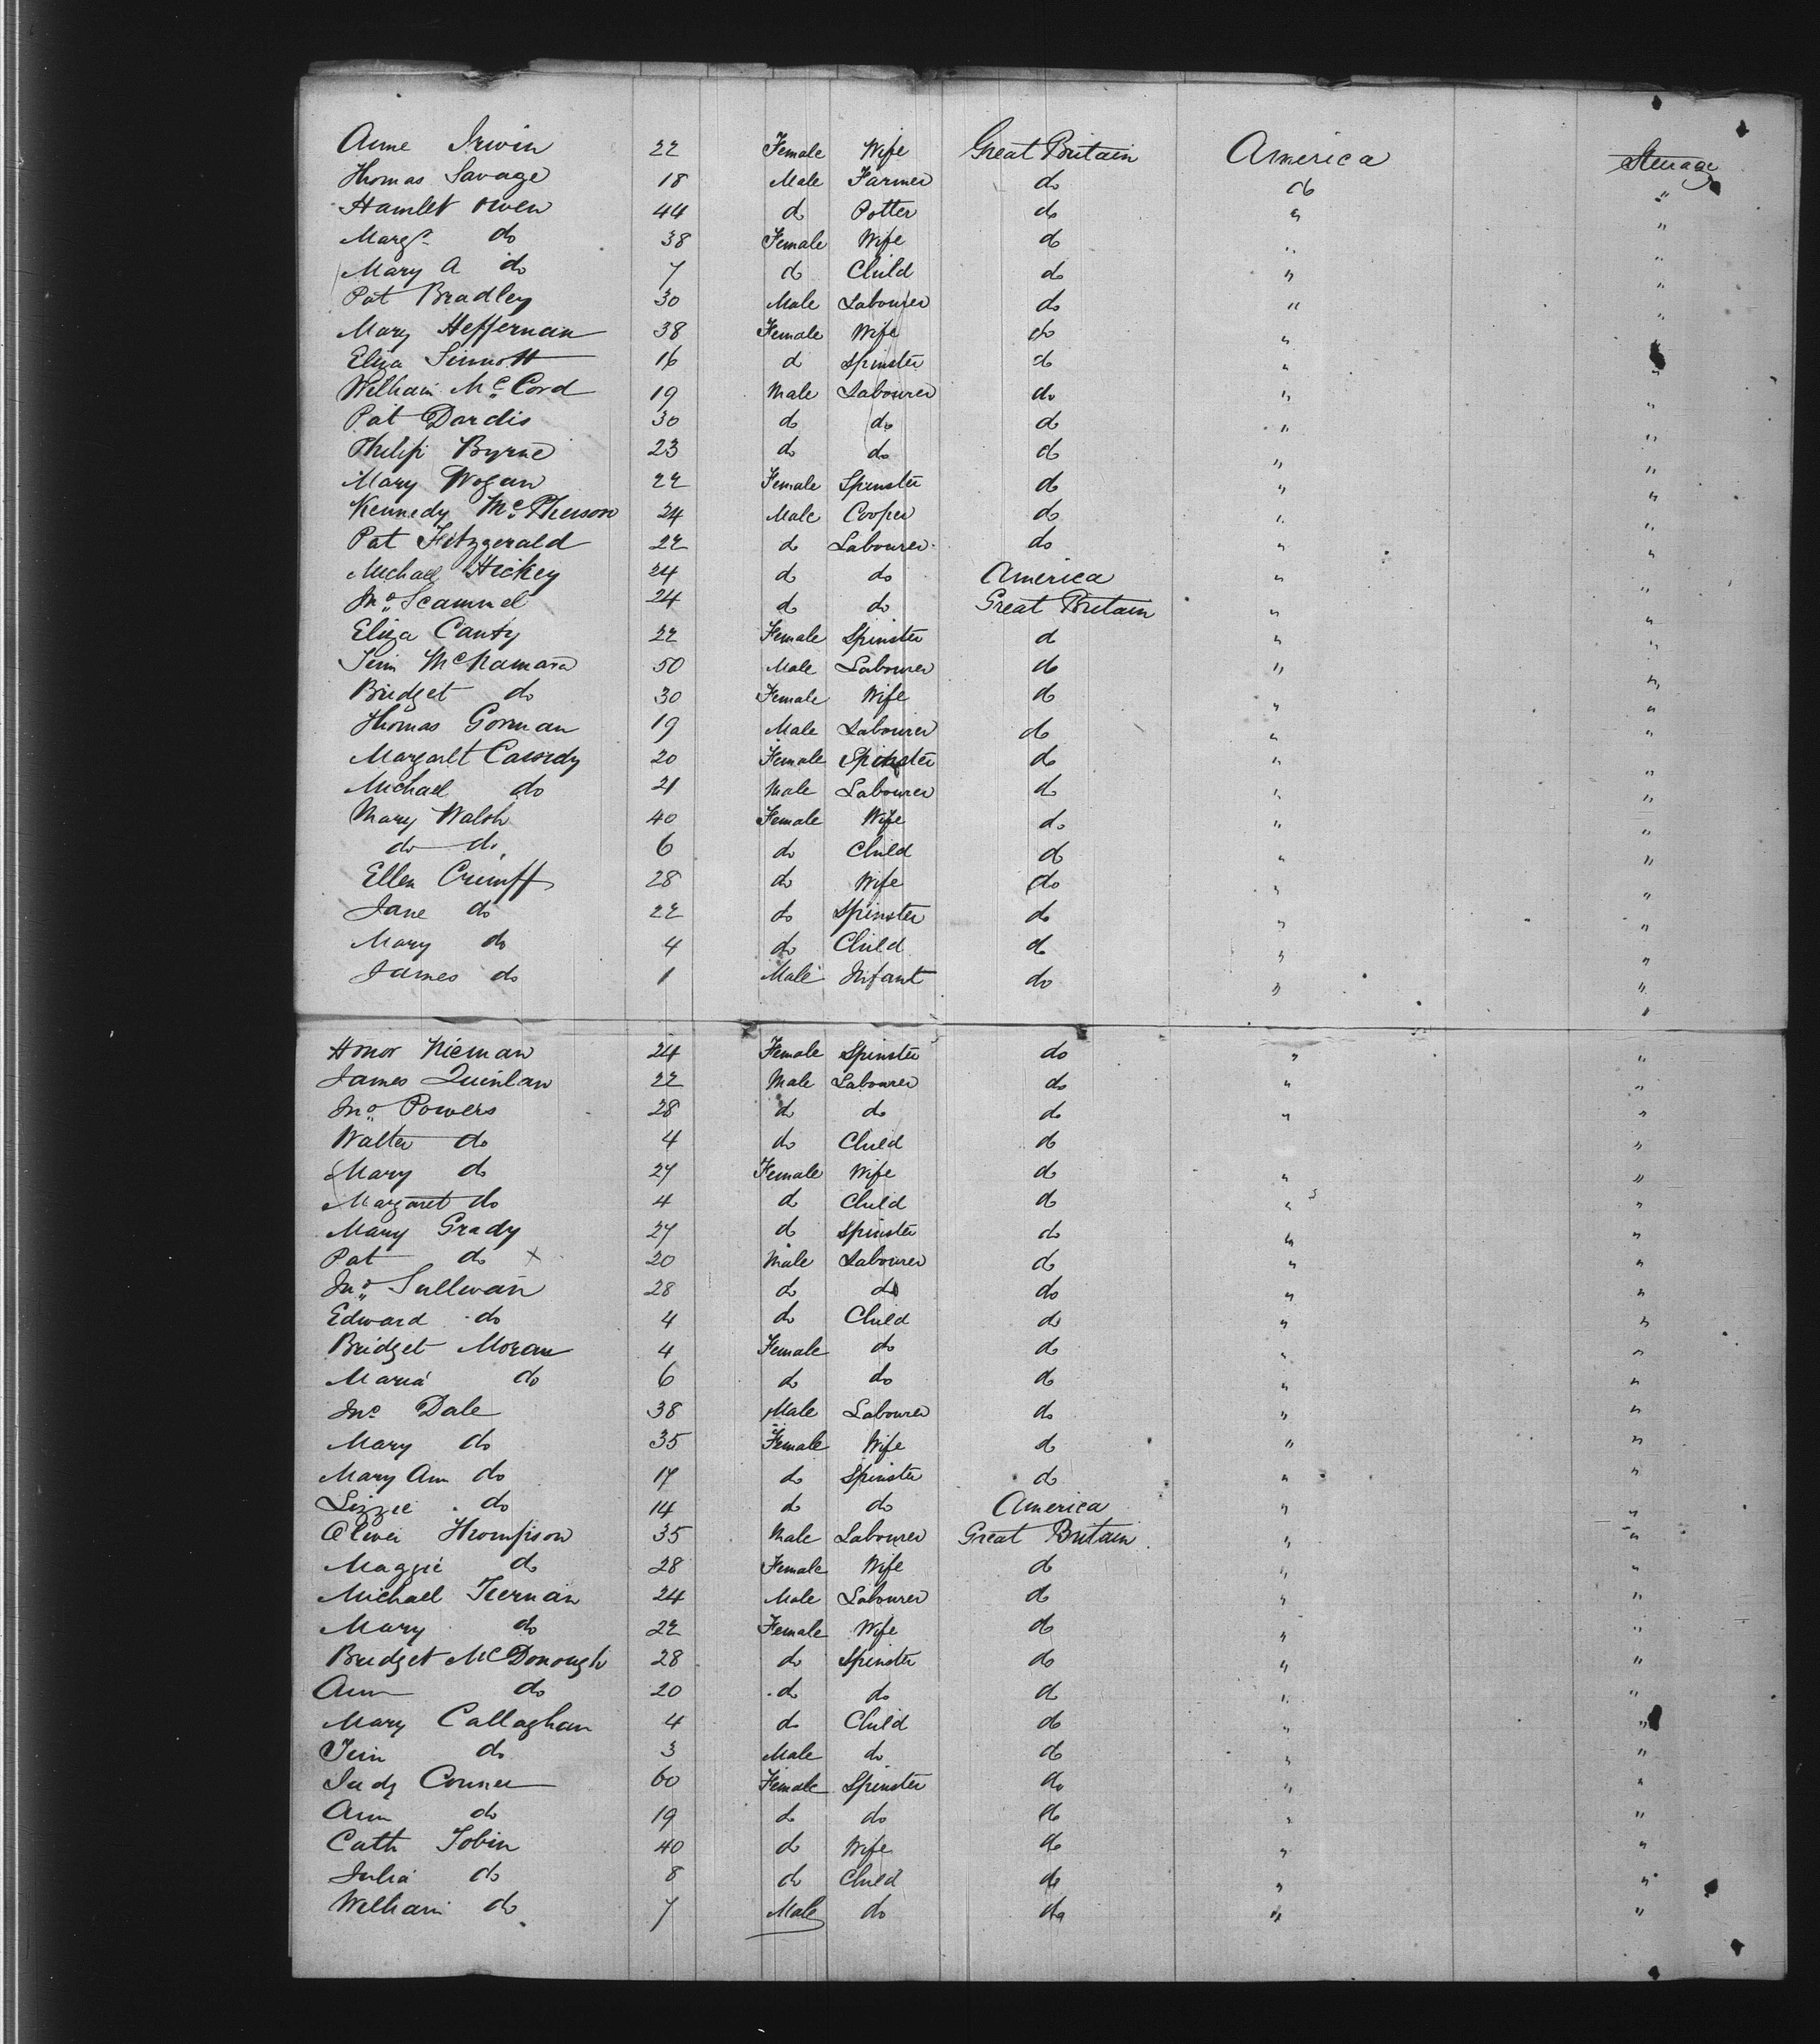 Anne Irwin 22 Female Wife Great Britain America Steerage
Thomas Savage 18 Male Farmer do do "
Hamlet Owen 44 do Potter do " "
Margt do 38 Female Wife do " "
Mary A do 7 do Child do " "
Pat Bradley 30 Male Labourer do " "
Mary Heffernan 38 Female Wife do "
Eliza Sinnott 16 do Spinster do " "
William Mc Cord 19 Male Labourer do " "
Pat Dardis 30 do do do " "
Philip Byrne 23 do do do " "
Mary Wogan 22 Female Spinster do " "
Kennedy Mc Pherson 24 Male Cooper do " "
Pat Fitzgerald 22 do Labourer do " "
Michael Hickey 24 do do America " "
Jno Scammel 24 do do Great Britain " "
Eliza Canty 22 Female Spinster do " "
Tim McNamara 50 Male Labourer do " "
Bridget do 30 Female Wife do " "
Thomas Gorman 19 Male Labourer do " "
Margaret Cassidy 20 Female Spinster do " "
Michael do 21 Male Labourer do " "
Mary Walsh 40 Female Wife do " "
do do 6 do Child do " "
Ellen 28 do Wife do " "
Jane do 22 do Spinster do " "
Mary do 4 do Child do " "
James do 1 Male Infant do " "
Honor 24 Female Spinster do " "
James Quinlan 22 Male Labourer do " "
Jno Powers 28 do do do " "
Walter do 4 do Child do "
Mary do 27 Female Wife do " "
Margaret do 4 do Child do " "
Mary Grady 27 do Spinster do " "
Pat do x 20 Male Labourer do " "
Jno Sullivan 28 do do do " "
Edward do 4 do Child do " "
Bridget Moran 4 Female do do " "
Maria do 6 do do do " "
Jno Dale 38 Male Labourer do " "
Mary do 35 Female Wife do " "
Mary Ann do 17 do Spinster do " "
Lizzie do 14 do do America " "
Oliver Thompson 35 Male Labourer Great Britain " "
Maggie do 28 Female Wife do " "
Michael Kiernan 24 Male Labourer do " "
Mary do 22 Female Wife do " "
Bridget McDonough 28 do Spinster do " "
Ann do 20 do do do " "
Mary Callaghan 4 do Child do " "
Tim do 3 Male do do " "
Judy 60 Female Spinster do " "
Ann do 19 do do do " "
Cath Tobin 40 do Wife do " "
Julia do 8 do Child do " "
William do 7 Male do do " "